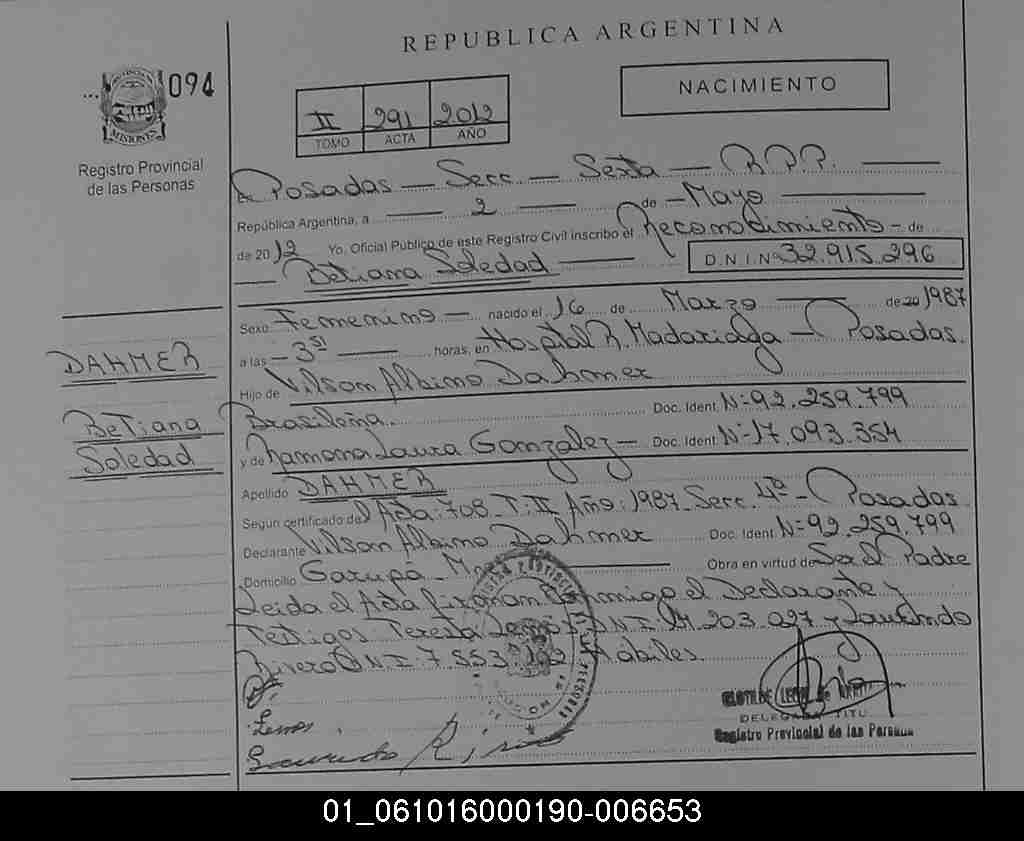 REPUBLICA ARGENTINA
094
NACIMIENTO
II 291 2012
TOMO ACTA AÑO
MISIONES
Registro Provincial
de las Personas
En Posadas — Secc. — Sexta — R.P.P.
República Argentina, a 2 de Mayo
de 2012 Yo, Oficial Público de este Registro Civil inscribo el Reconocimiento - de
Betiana Soledad D.N.I. Nº 32.915.296
Sexo Femenino — nacido el 16 de Marzo de 1987
a las - 3 horas, en Hospital R. Madariaga - Posadas.
DAHMER
Hijo de Vilson Albino Dahmer
Brasileña. Doc. Ident. Nº 92.259.799
Betiana
y de Ramona Laura Gonzalez - Doc. Ident. Nº 17.093.354
Soledad
Apellido DAHMER
Según certificado del Acta: 708 - T: II Año: 1987 - Secc. 4ta - Posadas
Declarante Vilson Albino Dahmer Doc. Ident. Nº 92.259.799
Domicilio Garupá - Mnes Obra en virtud de Ser El Padre
Leida el Acta firman Conmigo el Declarante y
Testigos Teresa Lemos D.N.I. 203.027 y Laurindo
Rivero D.N.I. 7.553. Hábiles.
Lemos
DELEGADA TITU
Registro Provincial de las Personas
01_061016000190-006653